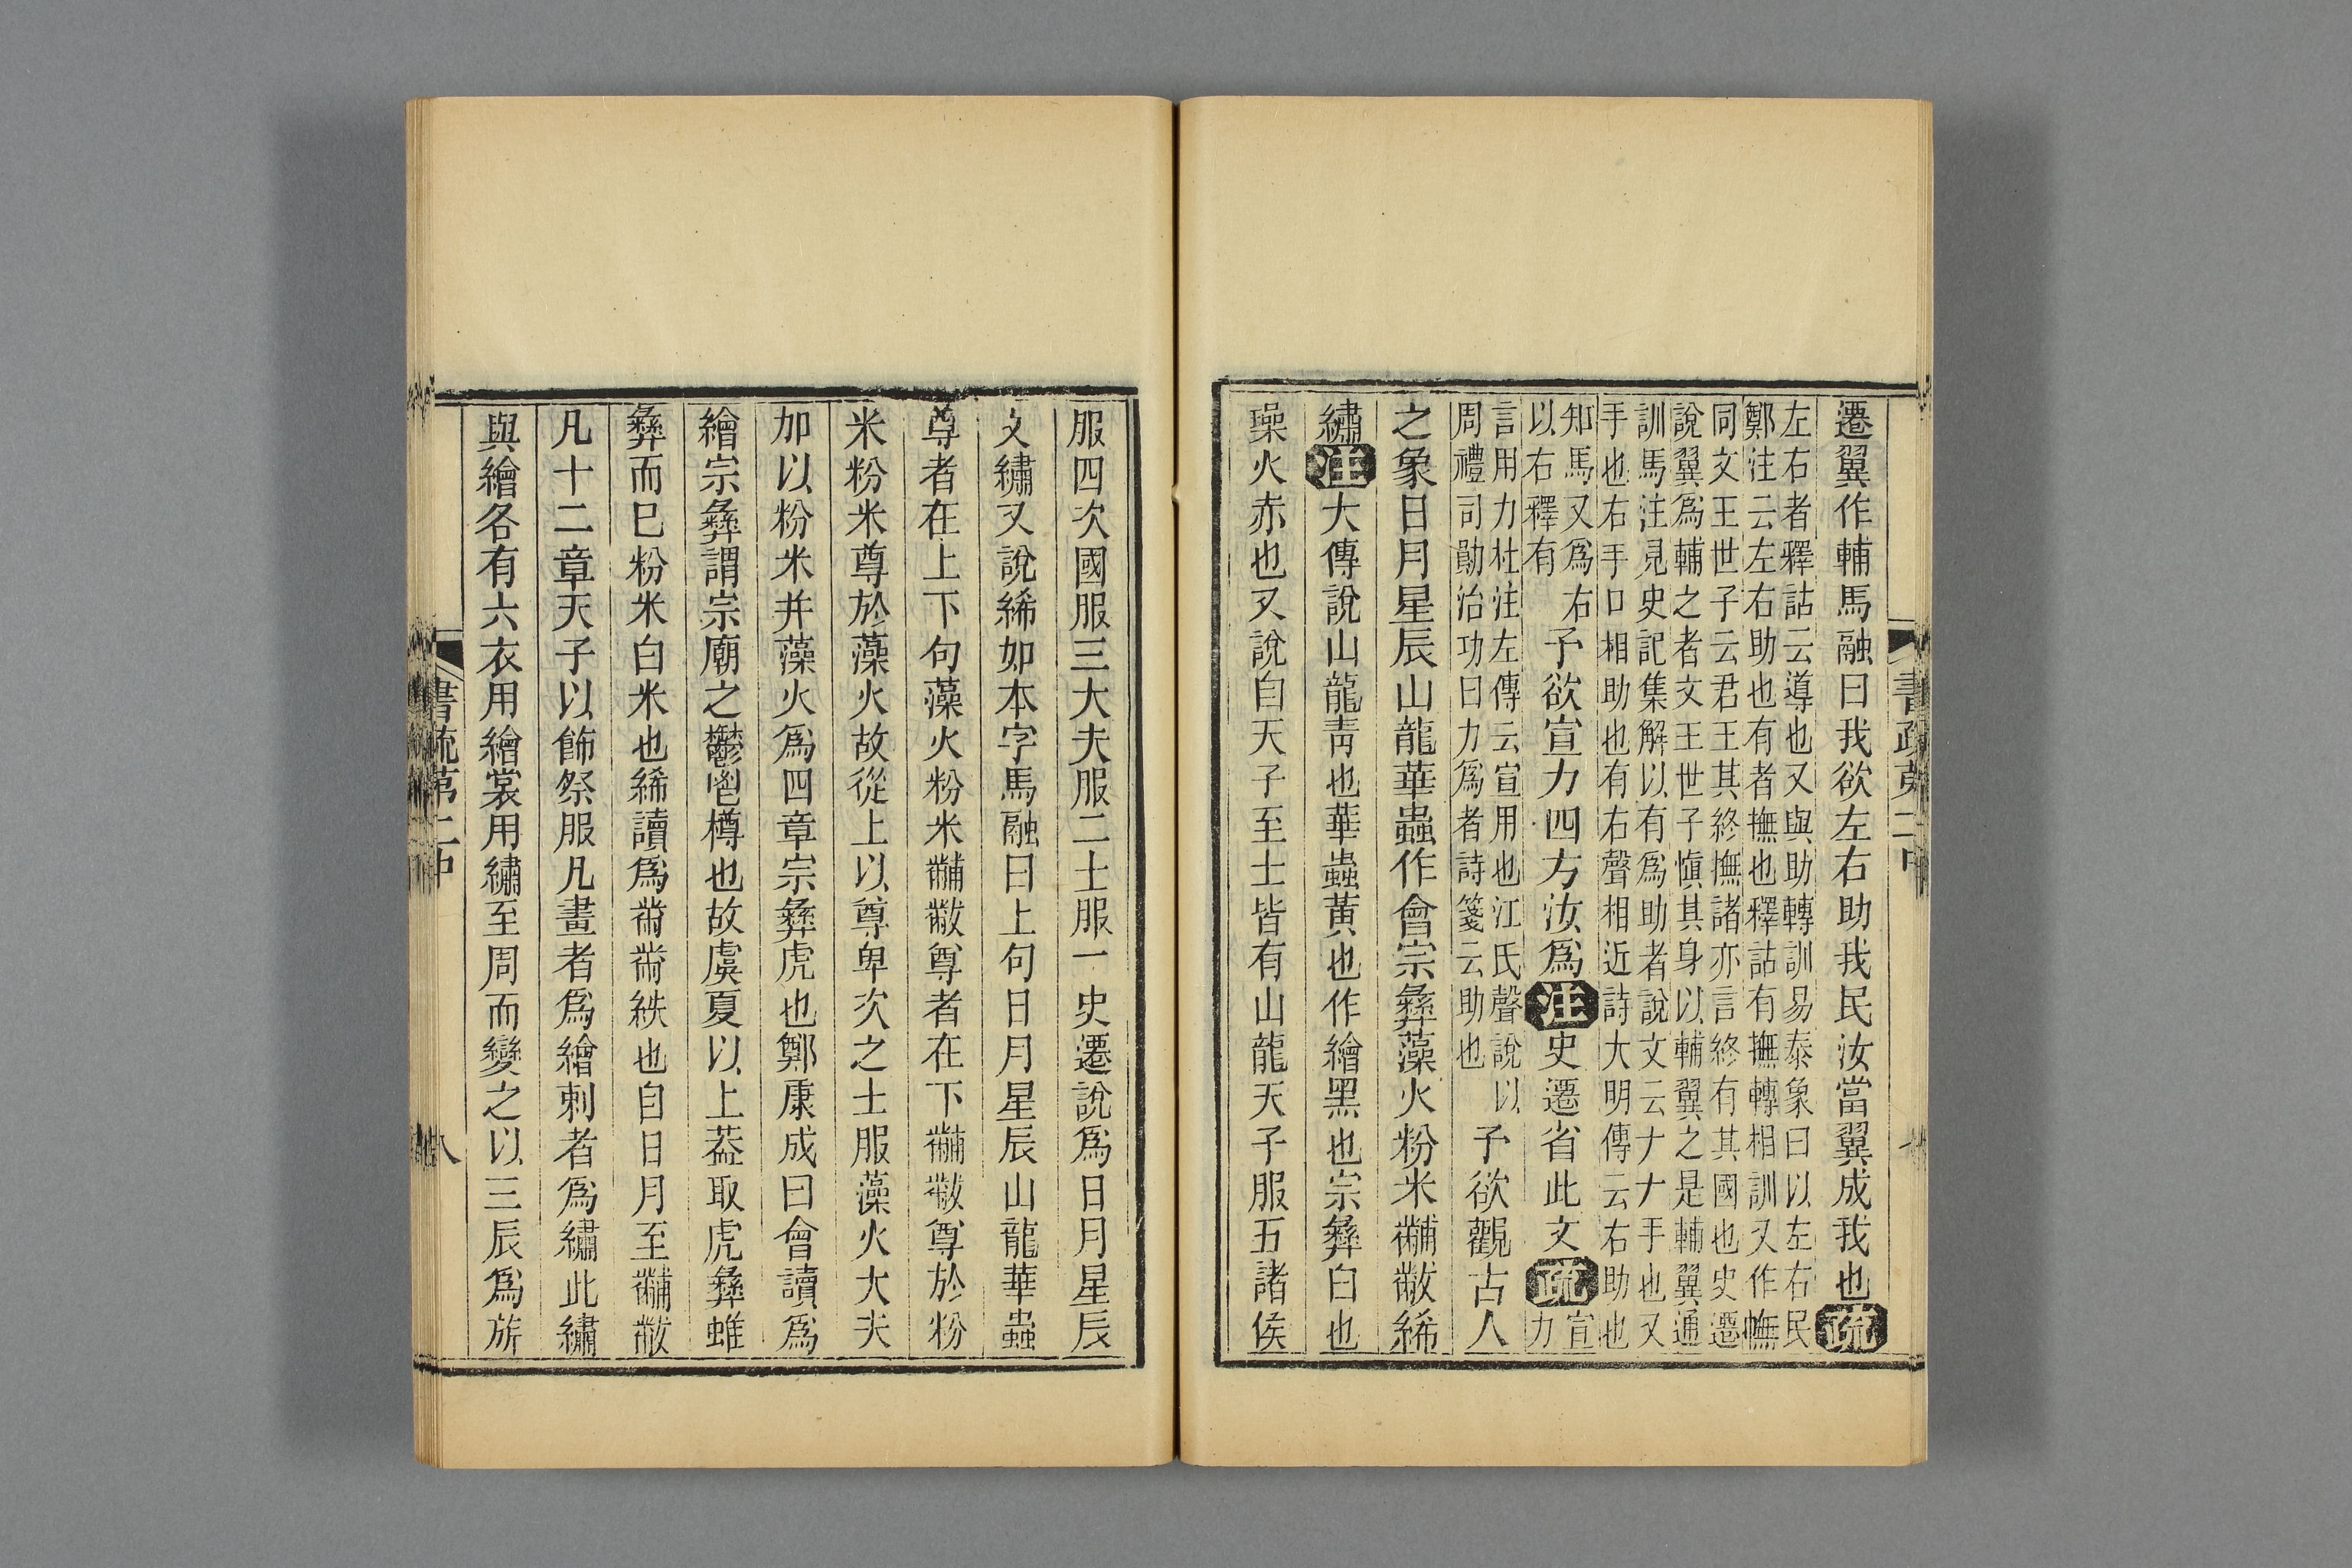 遷翼作輔馬融曰我欲左右助我民汝當翼成我也疏
左右者釋詁云導也又與助轉訓易泰象曰以左右民
鄭注云左右助也有者撫也釋詁有撫轉相訓又作幠
同文王世子云君王其終撫諸亦言終有其國也史遷
說翼爲輔之者文王世子愼其身以輔翼之是輔翼通
訓馬注見史記集解以有爲助者說文云𠂇𠂇手也又
手也右手口相助也有右聲相近詩大明傳云右助也
知馬又爲右
以右釋有
予欲宣力四方汝爲注史遷省此文疏
宣
力
言用力杜注左傳云宣用也江氏聲說以
周禮司勛治功曰力爲者詩箋云助也
予欲觀古人
之象日月星辰山龍華蟲作會宗彝藻火粉米黼黻絺
繡注大傳說山龍靑也華蟲黃也作繪黑也宗彝白也
璪火赤也又說自天子至士皆有山龍天子服五諸侯
服四次國服三大夫服二士服一史遷說爲日月星辰
文繡又說絺如本字馬融曰上句日月星辰山龍華蟲
尊者在上下句藻火粉米黼黻尊者在下黼黻尊於粉
米粉米尊於藻火故從上以尊卑次之士服藻火大夫
加以粉米并藻火爲四章宗彝虎也鄭康成曰會讀爲
繪宗彝謂宗廟之鬱鬯樽也故虞夏以上葢取虎彝蜼
彝而巳粉米白米也絺讀爲黹黹紩也自日月至黼黻
凡十二章天子以飾祭服凡畫者爲繪刺者爲繡此繡
與繪各有六衣用繪裳用繡至周而變之以三辰爲旂
書疏第二中
八